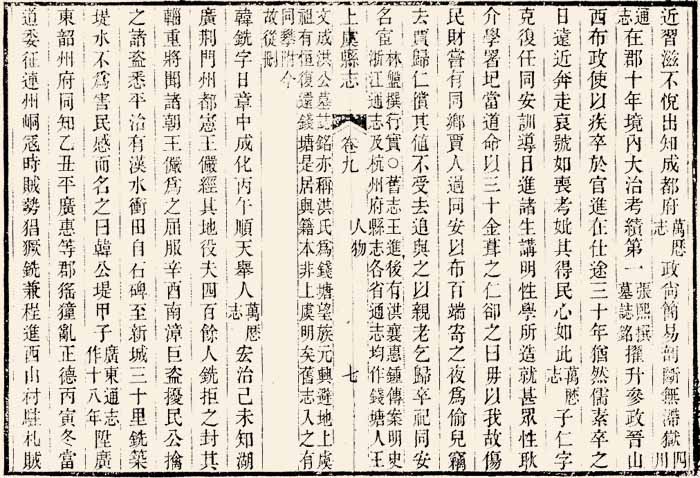 近習滋不悅出知成都府萬歷志政尚簡易剖斷無滯獄四川
通志在郡十年境內大治考績第一張熙撰墓誌銘擢升參政晉山
西布政使以疾卒於官進在仕途三十年猶然儒素卒之
日遠近奔走哀號如喪考妣其得民心如此萬歷志子仁字
克復任同安訓導日進諸生講明性學所造就甚眾性耿
介學署圮當道命以三十金葺之仁卻之曰毋以我故傷
民財嘗有同鄉賈人過同安以布百端寄之夜為偷兒竊
去賈歸仁償其值不受去追與之以親老乞歸卒祀同安
名宦林鹽撰行實○舊志王進後有洪襄惠鍾傳案明史
浙江通志及杭州府縣志各省通志均作錢塘人王
上虞縣志 卷九 人物 七
文成洪公墓誌銘亦稱洪氏為錢塘望族元興避地上虞
祖有恒復還錢塘是居與籍本非上虞明矣舊志入之有
同攀附今
故從刪
韓銑字日章中成化丙午順天舉人萬歷志宏治己未知湖
廣荊門州都憲王儼經其地役夫四百餘人銑拒之封其
輜重將聞諸朝王儼為之屈服辛酉南漳巨盜擾民公擒
之諸盜悉平治有漢水衝田自石碑至新城三十里銑築
堤水不為害民感而名之曰韓公堤甲子廣東通志作十八年陞廣
東韶州府同知乙丑平廣惠等郡猺獞亂正德丙寅冬當
道委征連州峒寇時賊勢猖獗銑兼程進西山村駐札賊